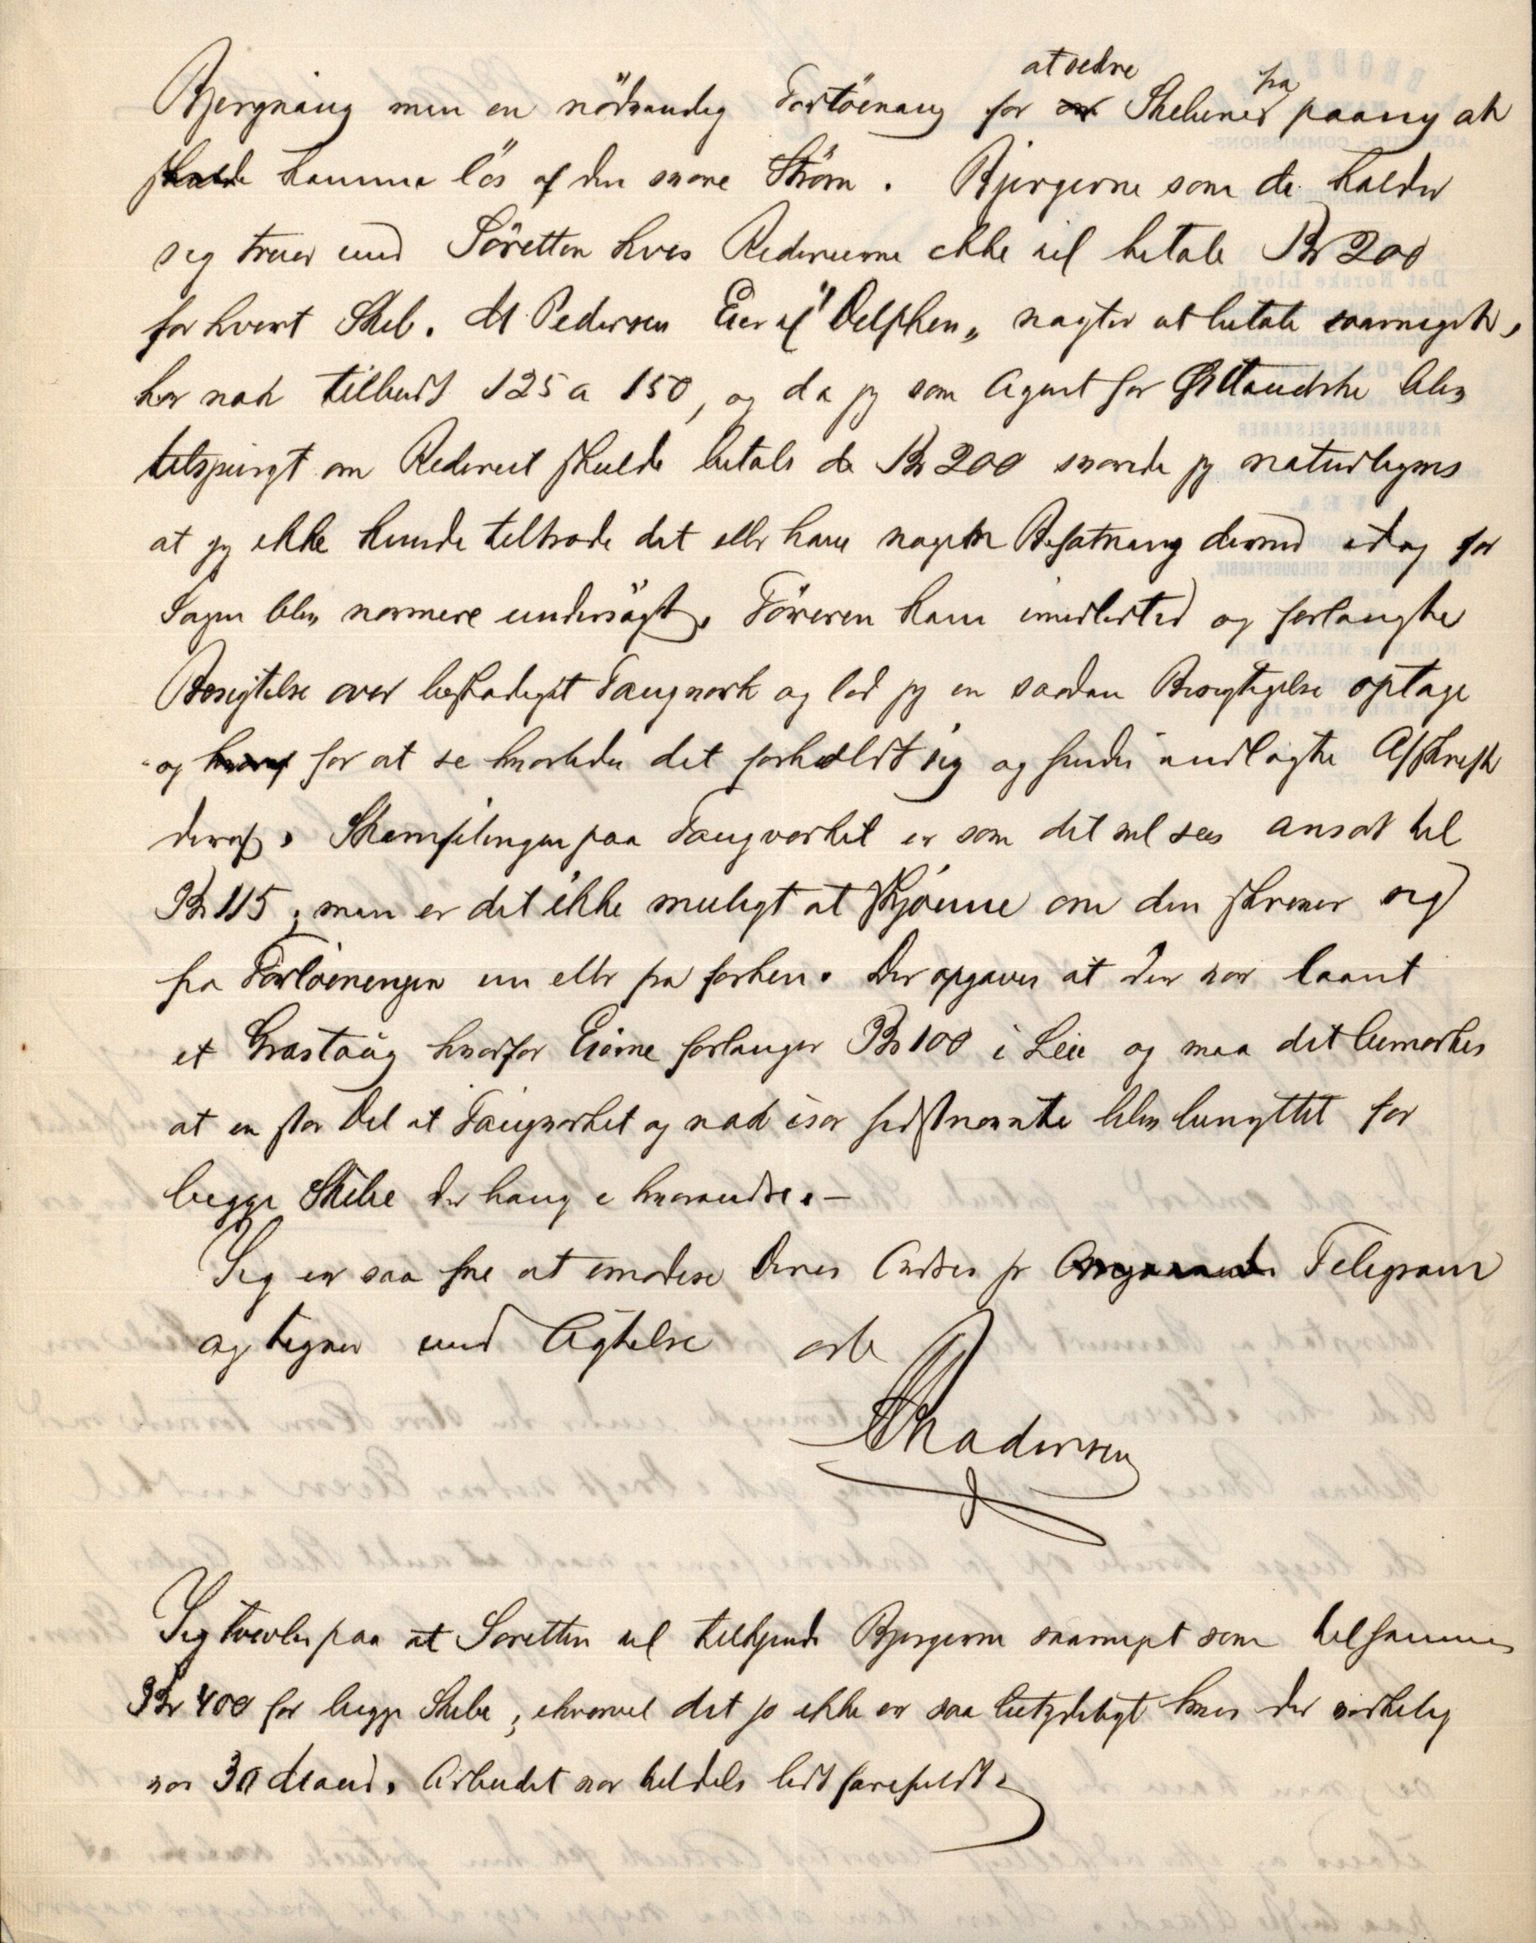 Bjergning men en nödvendig Fortöining for at redde Skibene fra paany at
skulde komme lös af den svære Ström. Bjergerne som de kalder
sig truer med Söretten hvis Rederierne ikke vil betale Kr 200
for hvert Skib. M Pedersen Eier af "Delphin" nægter at betale saameget,
har nok tilbudt 125 a 150, og da jeg som Agent for blev
tilspurgt om Rederiet skulde betale de Kr 200 svarede jeg naturligvis
at jeg ikke kunde tiltræde det eller have nogen Befatning dermed idag för
Sagen blev nærmere undersögt. Föreren kom imidlertid og forlangte
Besigtelse over beskadiget Taugværk og lod jeg en saadan Besigtigelse optage
og for at se hvorledes det forholdt sig og sender indlagte Afskrift
deraf. Skamfilingen paa Taugværket er som det vil sees ansat til
Kr 115, men er det ikke muligt at skjönne om den skriver sig
fra Fortöiningen nu eller fra forhen. Der opgaves at der var laant
et Grastoug hvorfor Eierne forlanger Kr 100 i Leie og maa det bemærkes
at en stor Del af Taugværket og nok især sidstnævnte blev benyttet for
begge Skibe der hang i hverandre. —
Jeg er saa fri at imödese Deres Ordres pr Telegram
og tegner med Agtelse
Madersen
Jeg tvivler paa at Söretten vil tilkjende Bjergerne saameget som tilsammen
Kr 400 for begge Skibe, ihvorvel det jo ikke er saa betydeligt hvis der virkelig
var 30 Mand. Arbeidet var tildels lidt farefuldt.